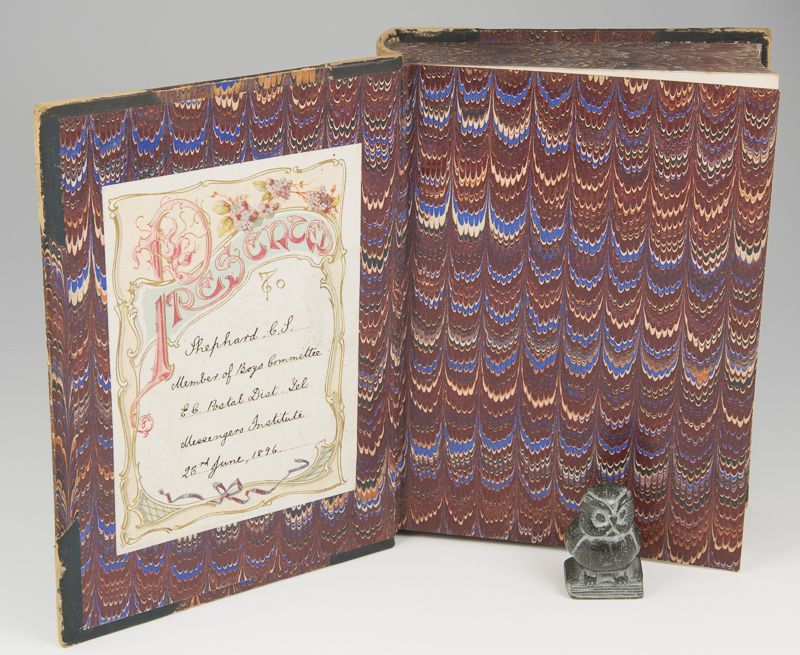 PRESENTED
To
Shephard. C. S.
Member of Boys Committee
E C Postal Dist. Tel.
Messengers Institute
23rd June, 1896.